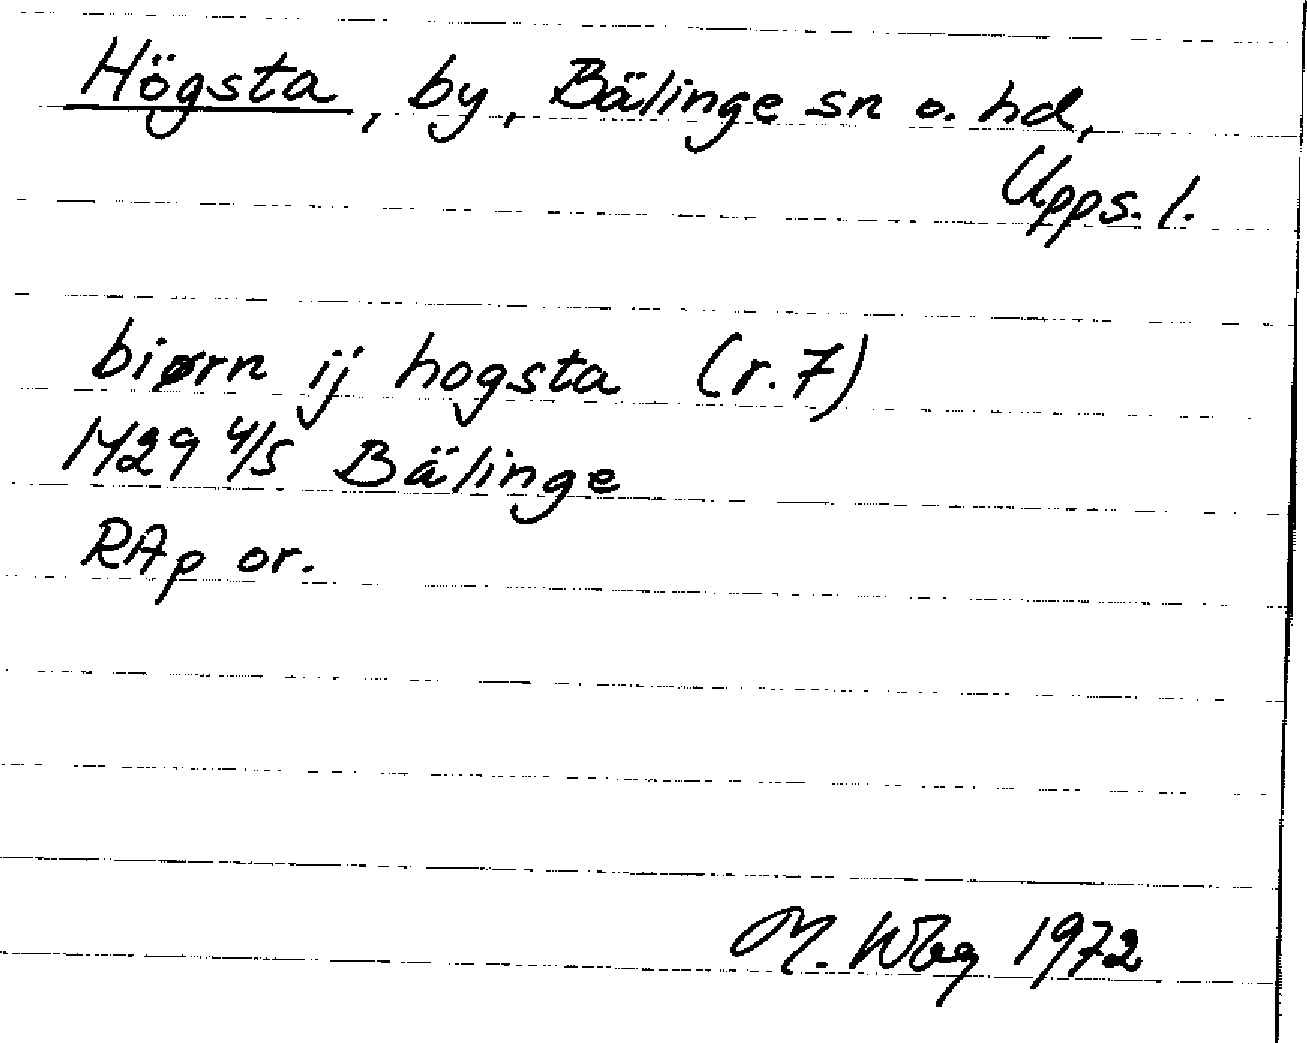 Högsta, by, Bälinge sn o. hd,
Upps. l.
biørn ij hogsta (r. 7)
1429 4/5 Bälinge
RAp or.
M. Wbg 1972